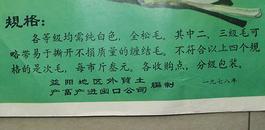 规格：
各等级均需纯白色，全松毛。其中二，三级毛可
略带易于撕开不损质量的缠结毛。不符合以上四个规
格的是次毛，每市斤叁元。各收购点，分级包装。
益阳地区外贸土 编制 一九七八年
产畜产进出口公司